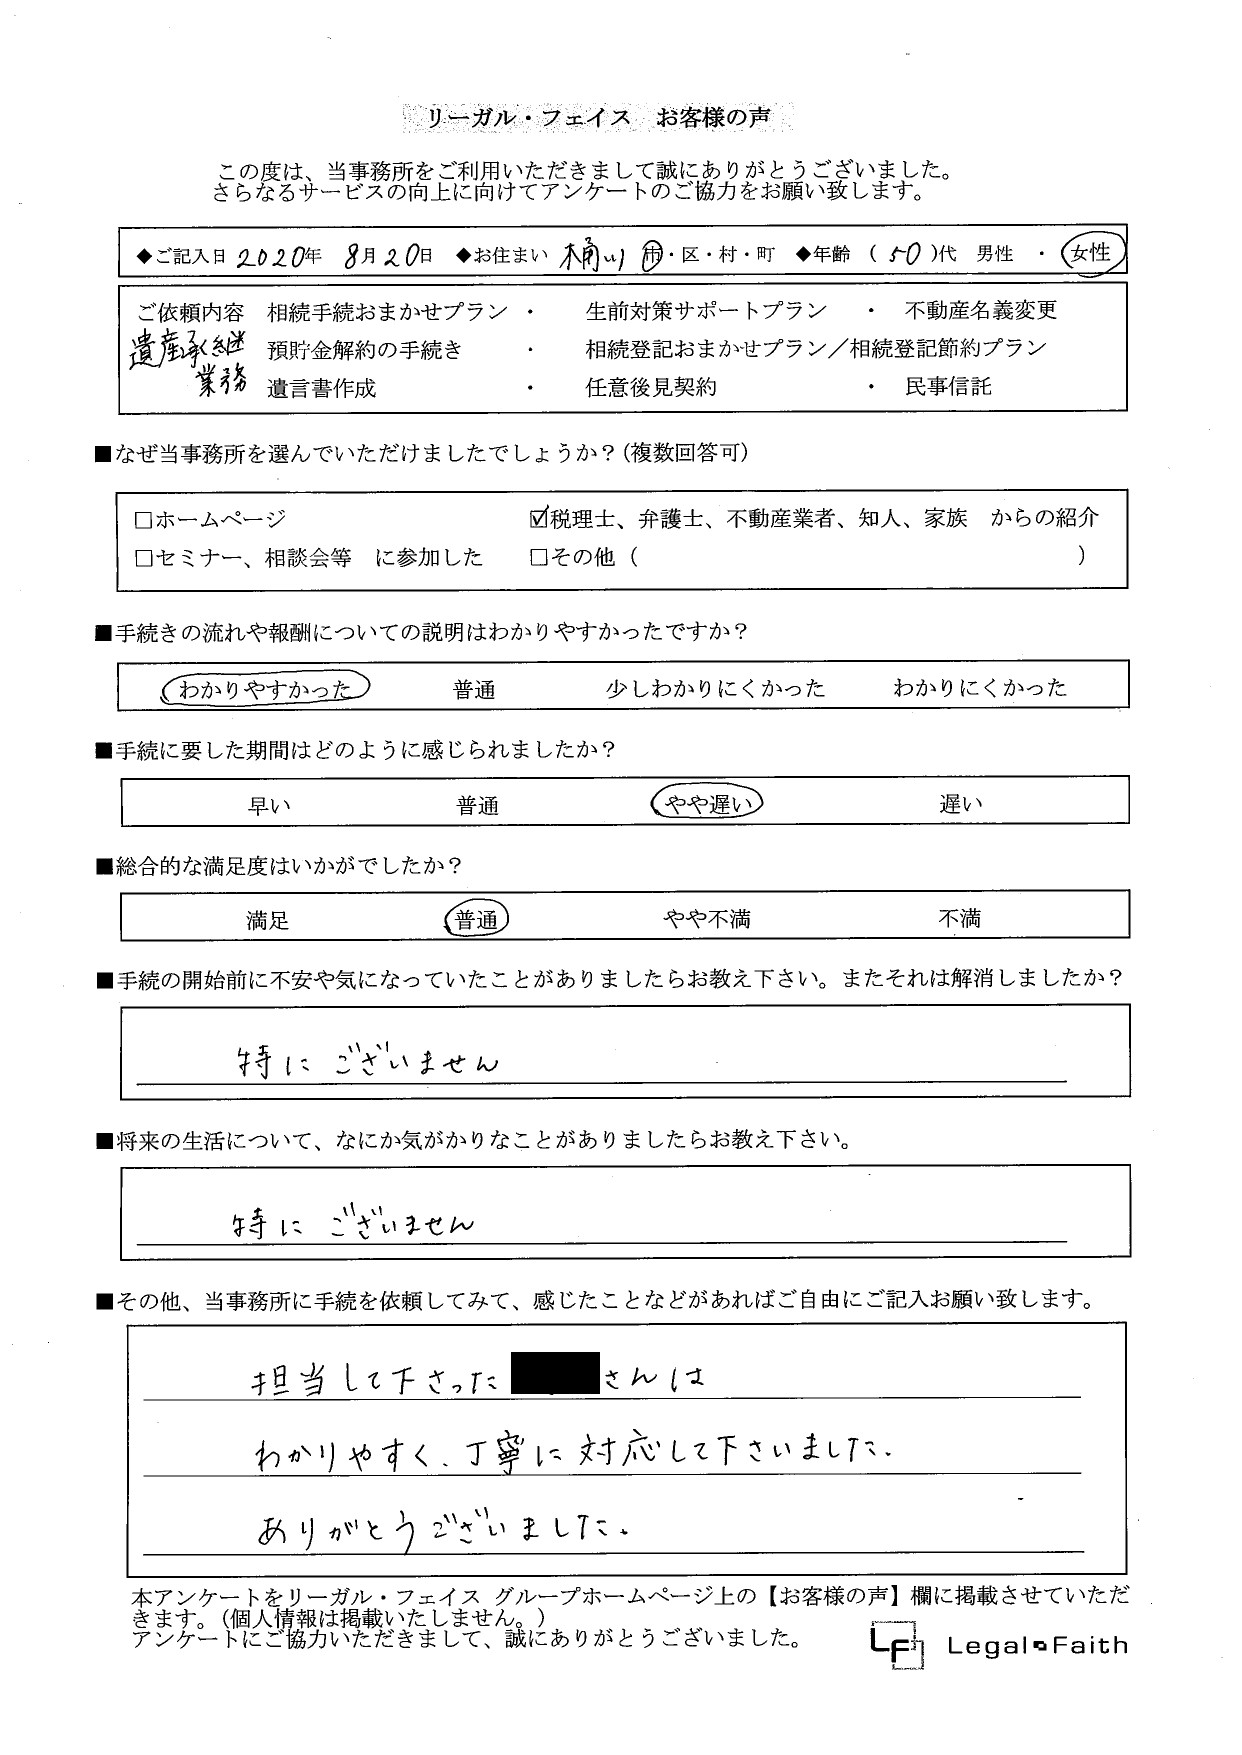 リーガル・フェイス　お客様の声
この度は、当事務所をご利用いただきまして誠にありがとうございました。
さらなるサービスの向上に向けてアンケートのご協力をお願い致します。
◆ご記入日 2020年 8月20日 ◆お住まい 桶川 市・区・村・町 ◆年齢 （ 50 ）代 男性 ・ 女性
ご依頼内容 相続手続おまかせプラン ・ 生前対策サポートプラン ・ 不動産名義変更
遺産承継 預貯金解約の手続き ・ 相続登記おまかせプラン／相続登記節約プラン
業務 遺言書作成 ・ 任意後見契約 ・ 民事信託
■なぜ当事務所を選んでいただけましたでしょうか？（複数回答可）
□ホームページ ☑税理士、弁護士、不動産業者、知人、家族　からの紹介
□セミナー、相談会等　に参加した □その他（ ）
■手続きの流れや報酬についての説明はわかりやすかったですか？
わかりやすかった 普通 少しわかりにくかった わかりにくかった
■手続に要した期間はどのように感じられましたか？
早い 普通 やや遅い 遅い
■総合的な満足度はいかがでしたか？
満足 普通 やや不満 不満
■手続の開始前に不安や気になっていたことがありましたらお教え下さい。またそれは解消しましたか？
特に ございません
■将来の生活について、なにか気がかりなことがありましたらお教え下さい。
特に ございません
■その他、当事務所に手続を依頼してみて、感じたことなどがあればご自由にご記入お願い致します。
担当して下さった さんは
わかりやすく、丁寧に対応して下さいました。
ありがとうございました。
本アンケートをリーガル・フェイス グループホームページ上の【お客様の声】欄に掲載させていただ
きます。（個人情報は掲載いたしません。）
アンケートにご協力いただきまして、誠にありがとうございました。
LF Legal Faith